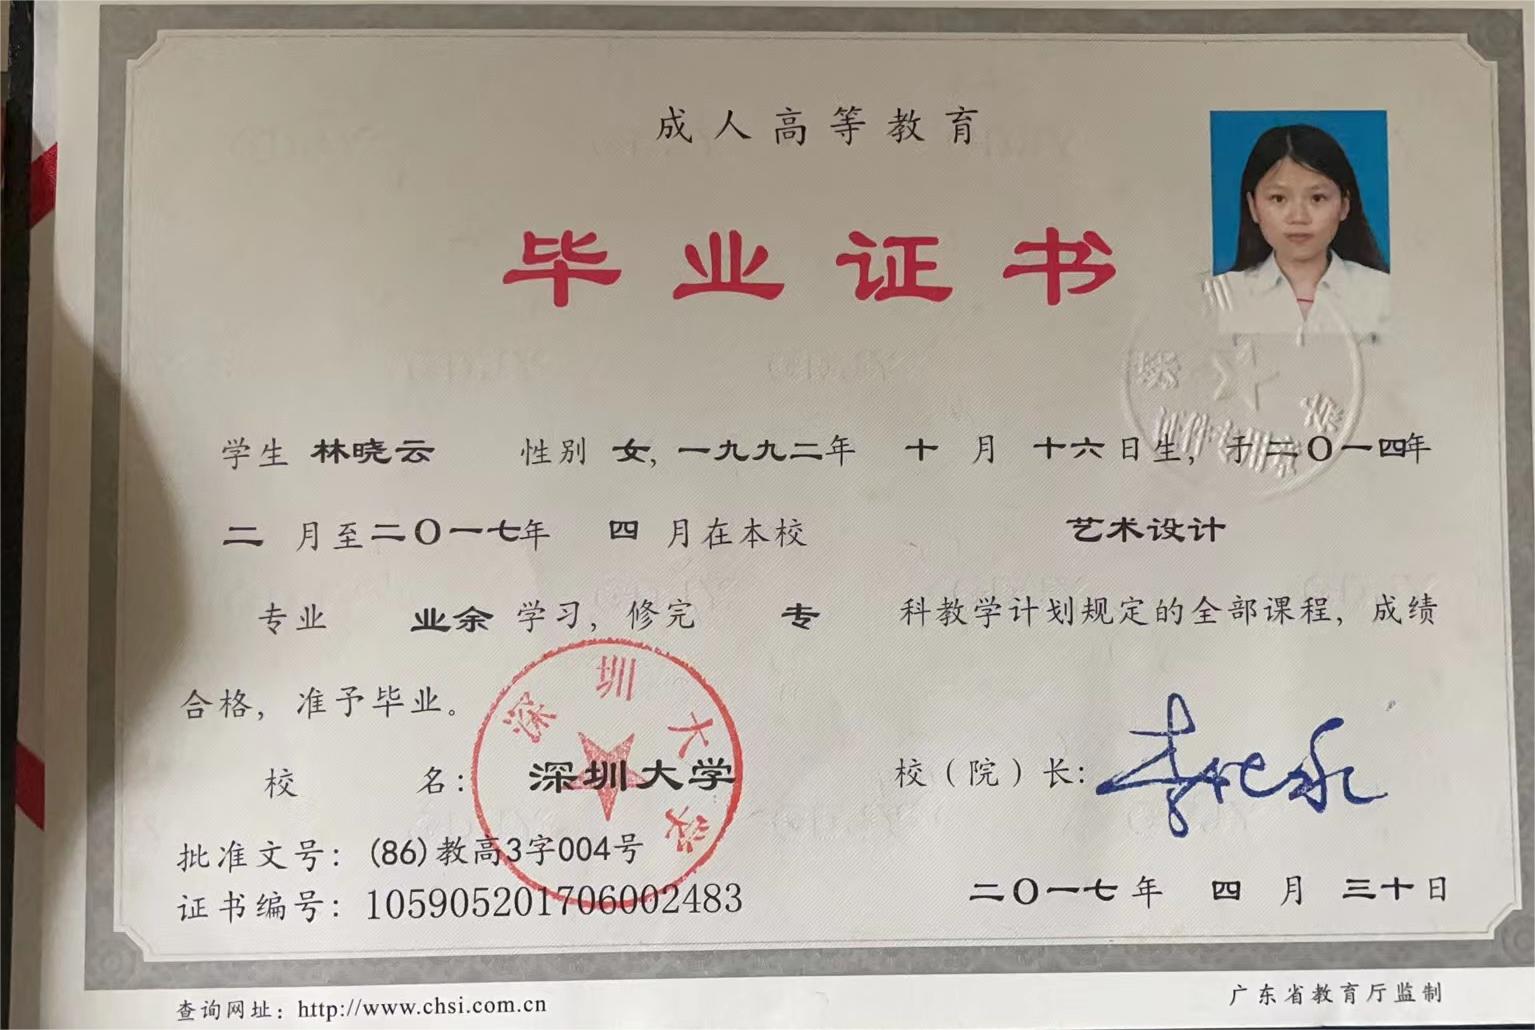 成人高等教育
毕业证书
学生 林晓云 性别 女, 一九九二年 十 月 十六日生, 于二〇一四年
二 月至二〇一七年 四 月在本校 艺术设计
专业 业余 学习, 修完 专 科教学计划规定的全部课程, 成绩
合格, 准予毕业。
校 名: 深圳大学 校（院）长:
深圳大学
批准文号: (86)教高3字004号
证书编号: 105905201706002483
二〇一七年 四 月 三十日
查询网址: http://www.chsi.com.cn
广东省教育厅监制